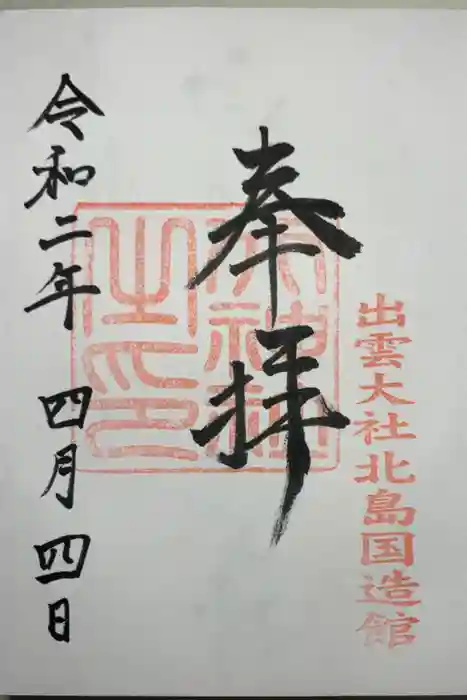 出雲大社北島国造館
奉拝
令和二年 四月 四日